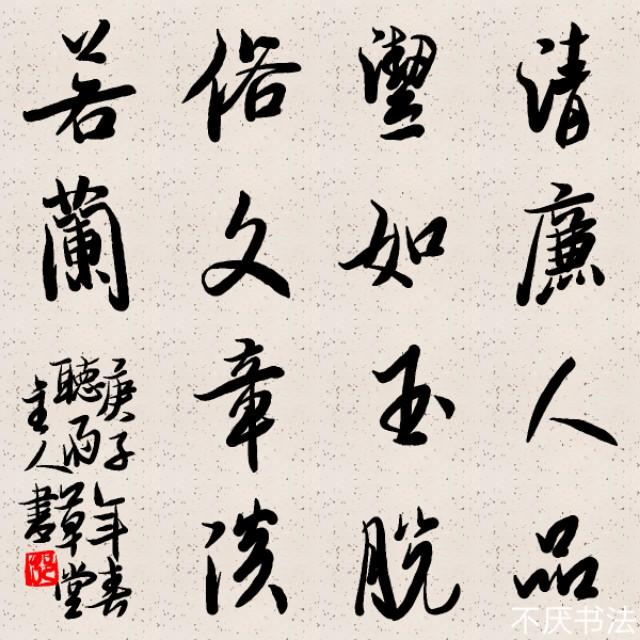 清廉人品
潔如玉脫
俗文章淡
若蘭
庚子年春
聽雨草堂
主人書
不厌书法